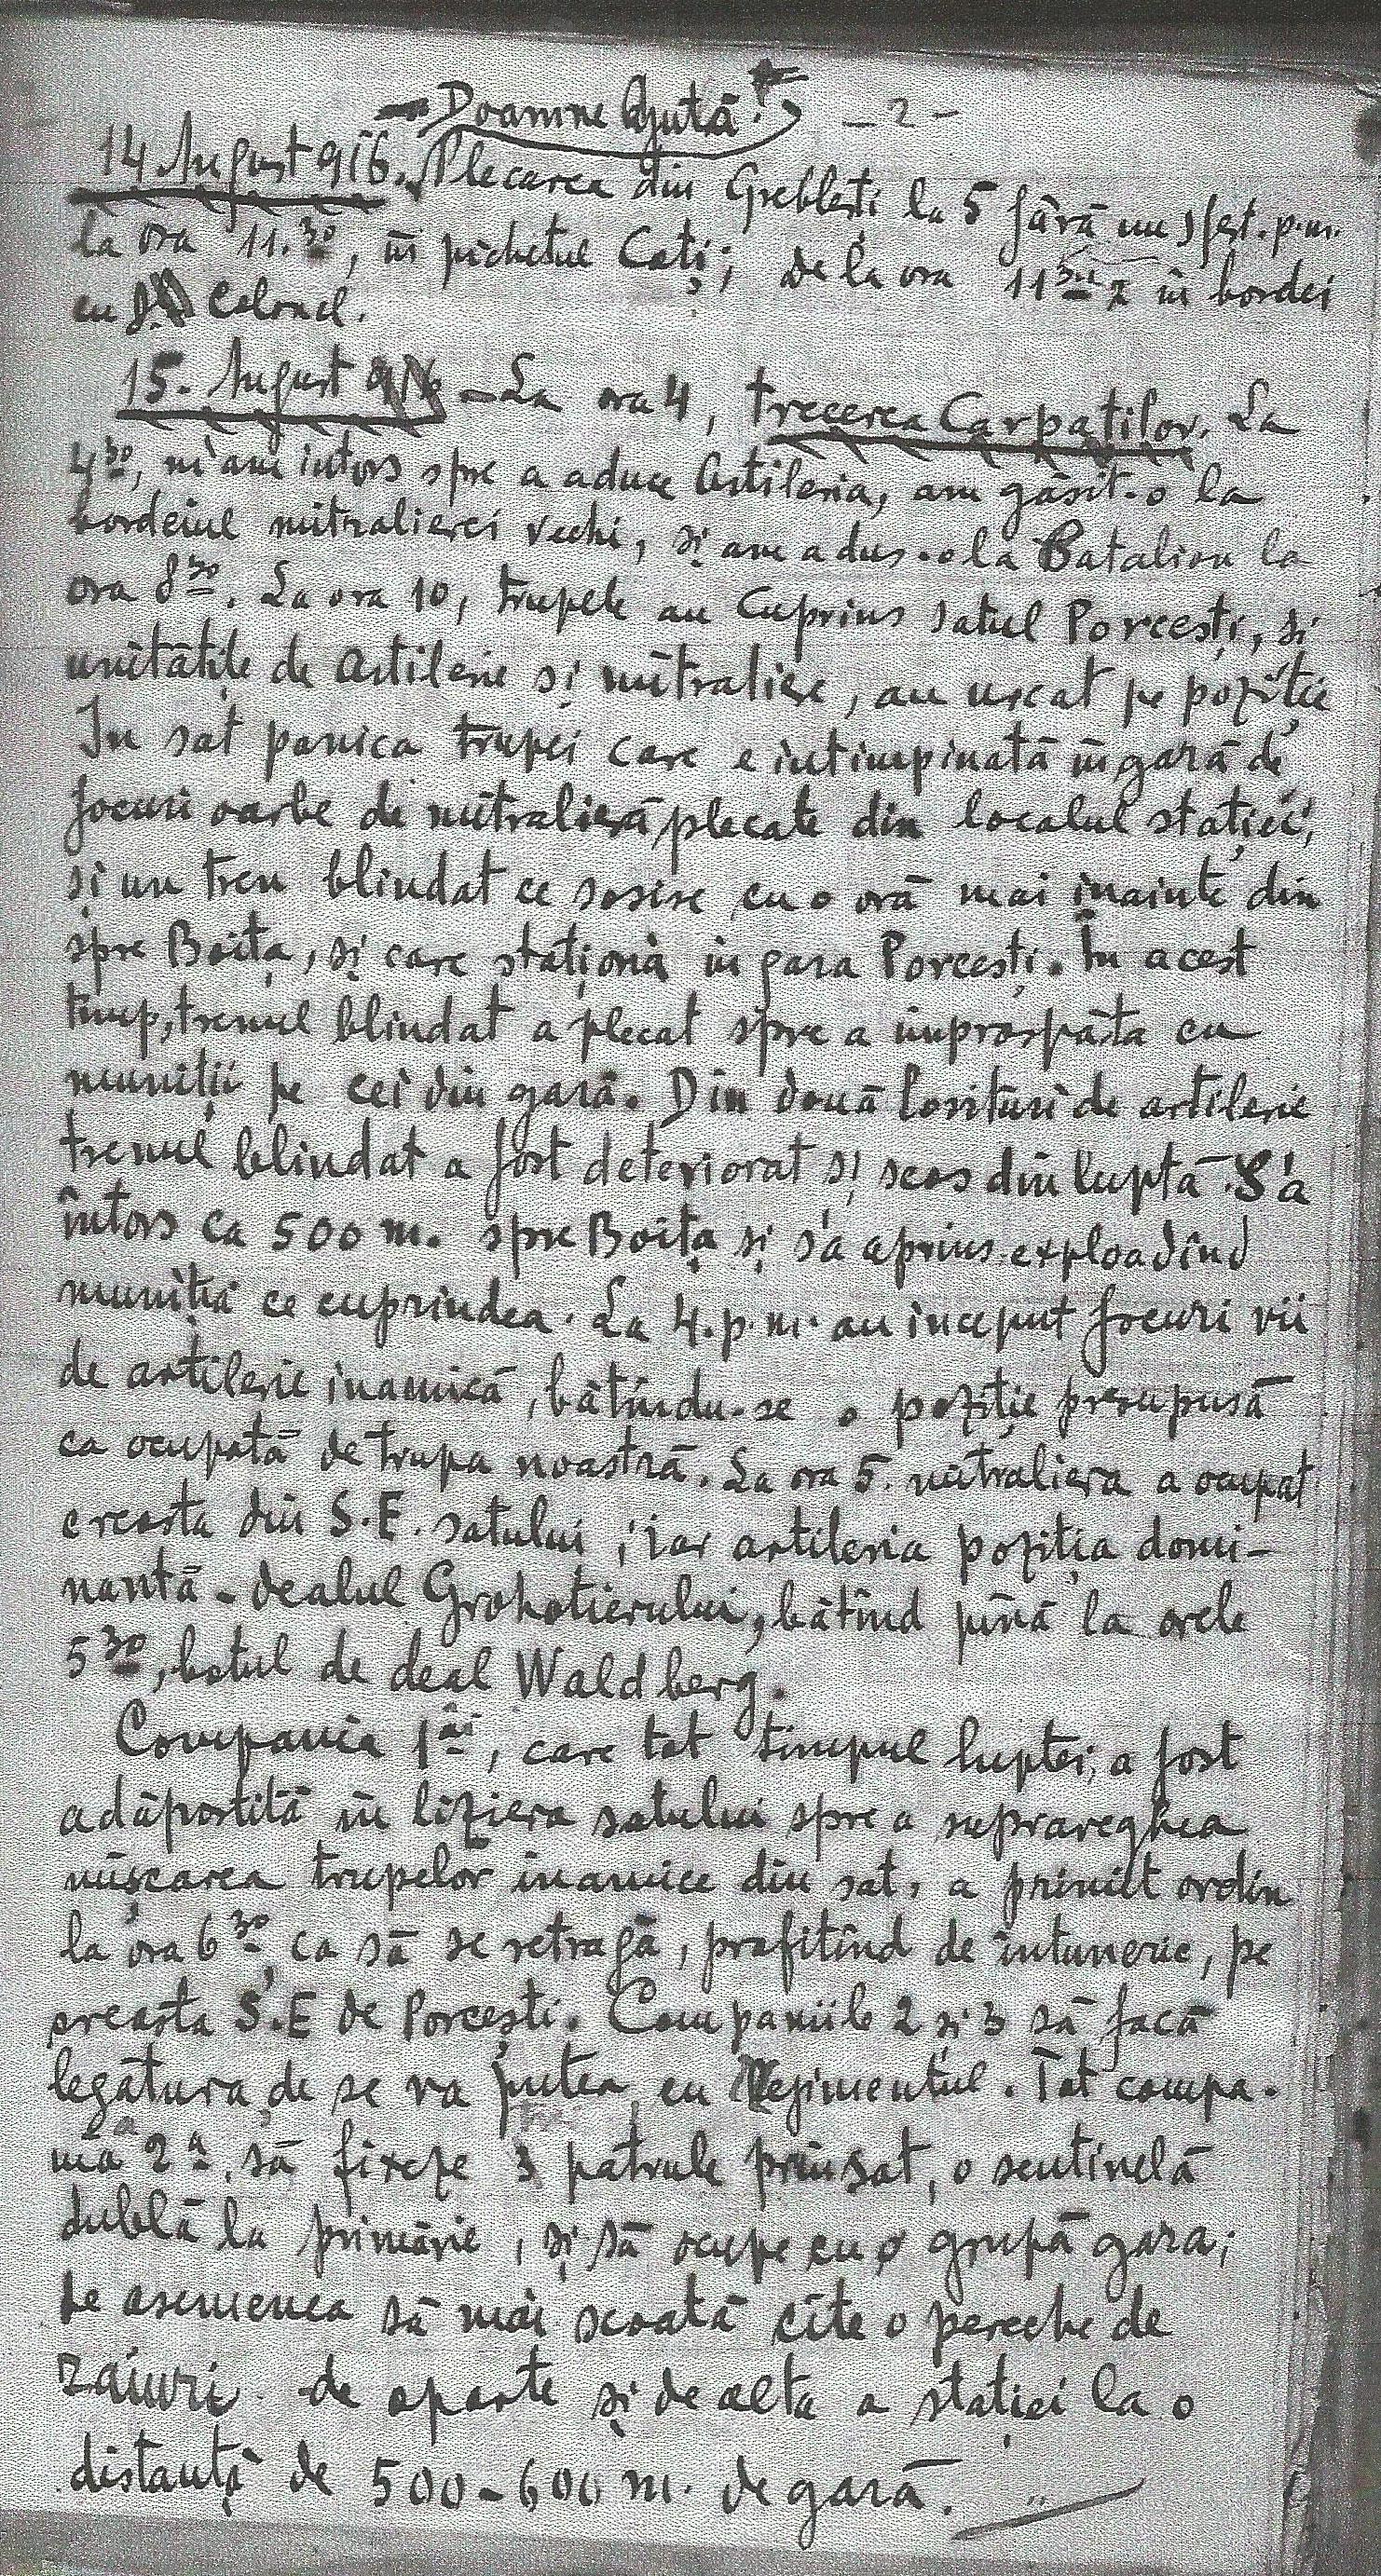 - Doamne Ajută! - 2 -
14 August 916. Plecarea din Greblești la 5 fără un sfert. p.m.
la ora 11.30, în pichetul Cați; de la ora 11 30 în bordei
cu Colonel.
15. August 916 - La ora 4, trecerea Carpaților. La
4 30, m'am întors spre a aduce Artileria, am găsit-o la
bordeiul mitralierei vechi, și am adus-o la Batalion la
ora 8 30. La ora 10, trupele au cuprins satul Porcești, și
unitățile de artilerie și mitraliere, au urcat pe poziție
In sat panica trupei care e intimpinată în gară de
focuri oarbe de mitralieră plecate din localul stației,
și un tren blindat ce sosise cu o oră mai înainte din
spre Boița, și care staționa in gara Porcești. In acest
timp, trenul blindat a plecat spre a improspăta cu
muniții pe cei din gară. Din două lovituri de artilerie
trenul blindat a fost deteriorat și scos din luptă. S'a
întors ca 500 m. spre Boița și s'a aprins exploadînd
muniția ce cuprindea. La 4. p.m. au inceput focuri vii
de artilerie inamică, bătîndu-se o poziție presupusă
ca ocupată de trupa noastră. La ora 5. mitraliera a ocupat
creasta din S.E. satului; iar artileria poziția domi-
nantă - dealul Grohotierului, bătînd pînă la orele
5 30, botul de deal Waldberg.
Compania 1 âi, care tot timpul luptei, a fost
adăpostită in liziera satului spre a supraveghea
mișcarea trupelor inamice din sat, a primit ordin
la ora 6 30, ca să se retragă, profitînd de întuneric, pe
creasta S.E de Porcești. Companiile 2 și 3 să facă
legătura de se va putea, cu Regimentul. Tot compa-
nia 2 a, să fixeze 3 patrule prin sat, o sentinelă
dublă la primărie, și să ocupe cu o grupă gara;
de asemenea să mai scoată cîte o pereche de
de oparte și de alta a stației la o
distanță de 500-600 m. de gară.